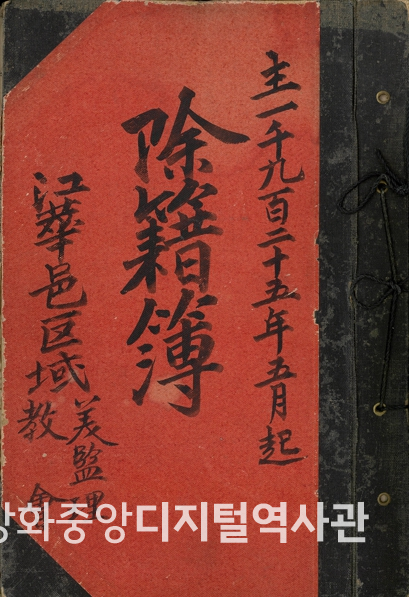 主一千九百二十五年五月起
除籍簿
江華邑区域
美監理
教會
강화중앙디지털역사관